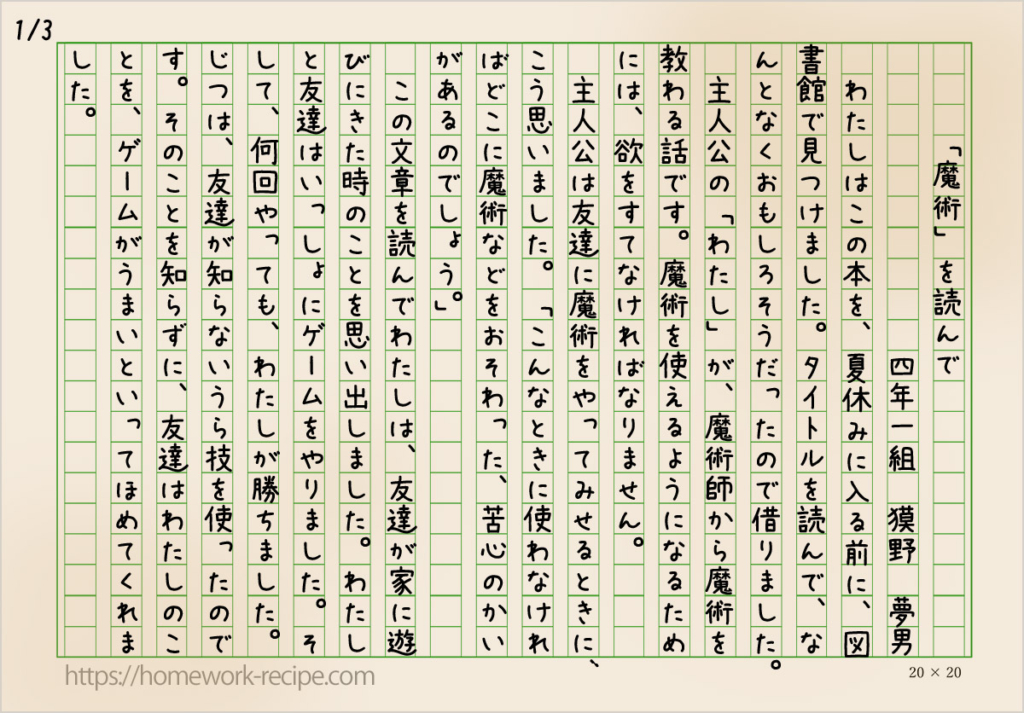 1/3
「魔術」を読んで
四年一組　獏野　夢男
わたしはこの本を、夏休みに入る前に、図
書館で見つけました。タイトルを読んで、な
んとなくおもしろそうだったので借りました。
主人公の「わたし」が、魔術師から魔術を
教わる話です。魔術を使えるようになるため
には、欲をすてなければなりません。
主人公は友達に魔術をやってみせるときに、
こう思いました。「こんなときに使わなけれ
ばどこに魔術などをおそわった、苦心のかい
があるのでしょう。」
この文章を読んでわたしは、友達が家に遊
びにきた時のことを思い出しました。わたし
と友達はいっしょにゲームをやりました。そ
して、何回やっても、わたしが勝ちました。
じつは、友達が知らないうら技を使ったので
す。そのことを知らずに、友達はわたしのこ
とを、ゲームがうまいといってほめてくれま
した。
https://homework-recipe.com
20 × 20